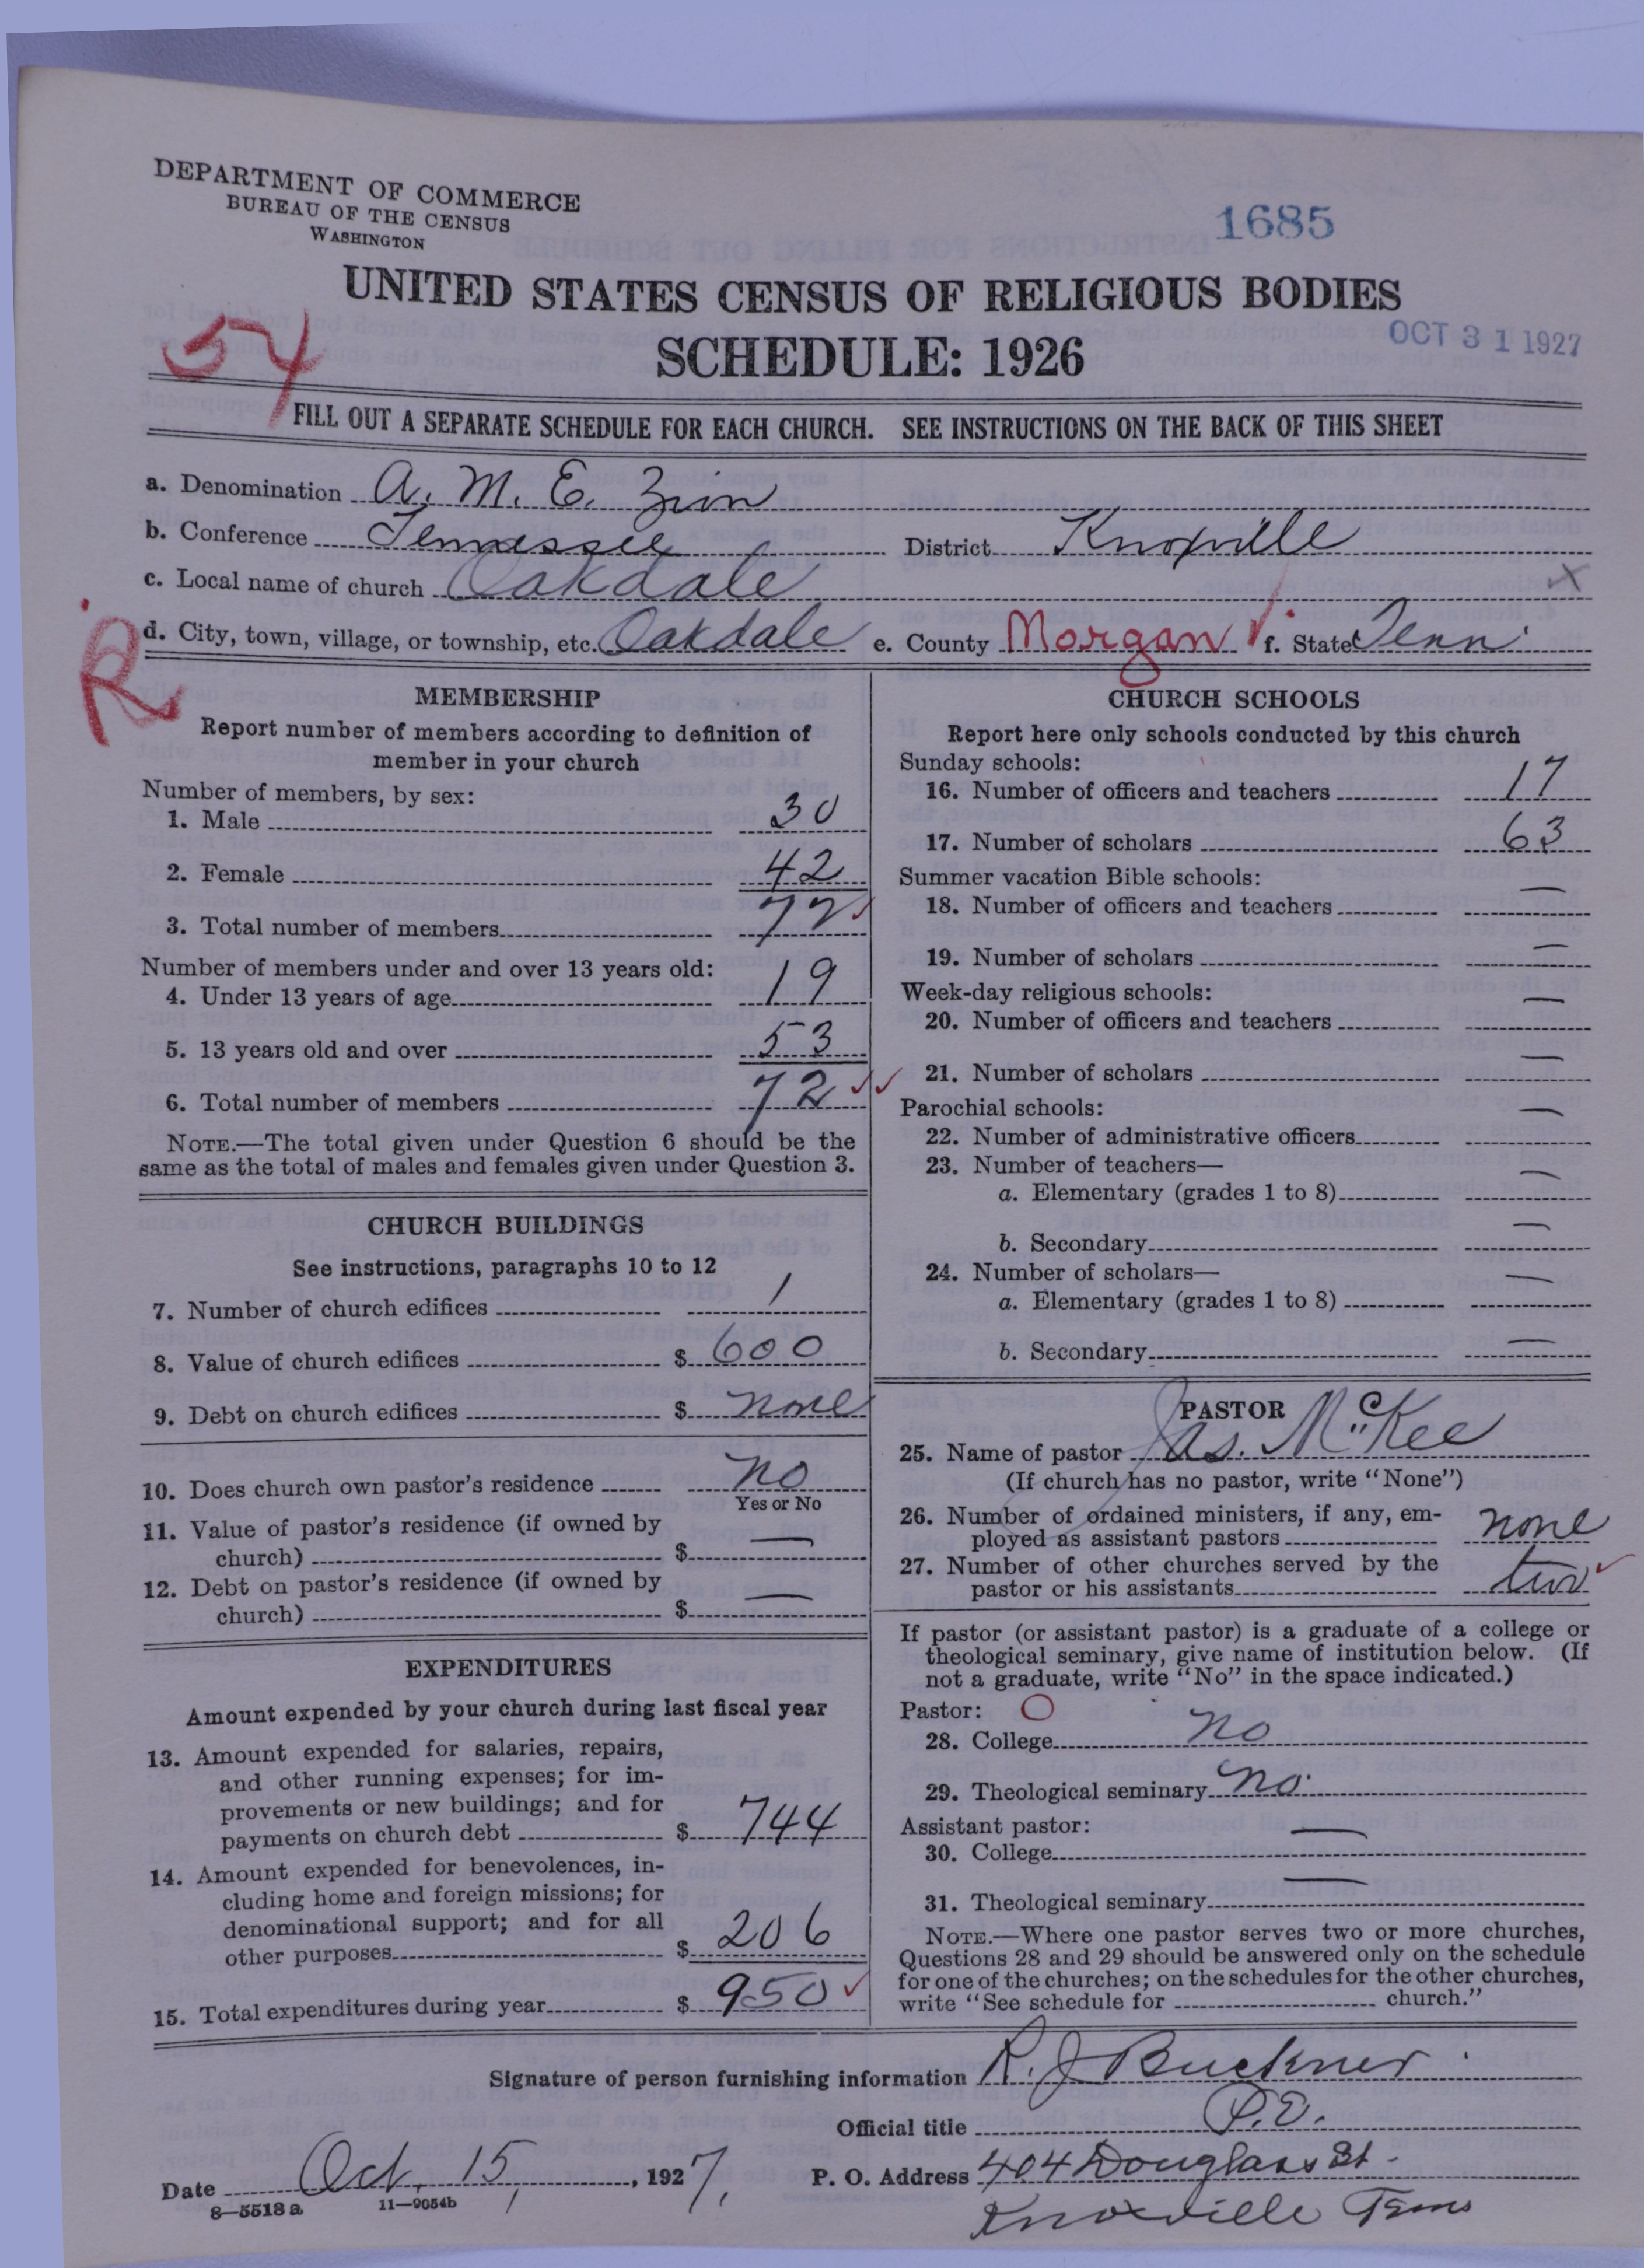 DEPARTMENT OF COMMERCE
BUREAU OF THE CENSUS
WASHINGTON
1685
UNITED STATES CENSUS OF RELIGIOUS BODIES
SCHEDULE: 1926
OCT 31 1927
54
FILL OUT A SEPARATE SCHEDULE FOR EACH CHURCH. SEE INSTRUCTIONS ON THE BACK OF THIS SHEET
a. Denomination A. M. E. Zion
b. Conference Tennessee District Knoxville
c. Local name of church Oakdale x
d. City, town, village, or township, etc. Oakdale e. County Morgan f. State Tenn.
R
MEMBERSHIP
Report number of members according to definition of
member in your church
Number of members, by sex:
1. Male 30
2. Female 42
3. Total number of members 72
Number of members under and over 13 years old:
4. Under 13 years of age 19
5. 13 years old and over 53
6. Total number of members 72
NOTE.—The total given under Question 6 should be the
same as the total of males and females given under Question 3.
CHURCH BUILDINGS
See instructions, paragraphs 10 to 12
7. Number of church edifices 1
8. Value of church edifices $ 600
9. Debt on church edifices $ none
10. Does church own pastor's residence no
Yes or No
11. Value of pastor's residence (if owned by
church) $ —
12. Debt on pastor's residence (if owned by
church) $ —
EXPENDITURES
Amount expended by your church during last fiscal year
13. Amount expended for salaries, repairs,
and other running expenses; for im-
provements or new buildings; and for
payments on church debt $ 744
14. Amount expended for benevolences, in-
cluding home and foreign missions; for
denominational support; and for all
other purposes $ 206
15. Total expenditures during year $ 950
CHURCH SCHOOLS
Report here only schools conducted by this church
Sunday schools:
16. Number of officers and teachers 17
17. Number of scholars 63
Summer vacation Bible schools:
18. Number of officers and teachers —
19. Number of scholars —
Week-day religious schools:
20. Number of officers and teachers —
21. Number of scholars —
Parochial schools:
22. Number of administrative officers —
23. Number of teachers—
a. Elementary (grades 1 to 8) —
b. Secondary —
24. Number of scholars—
a. Elementary (grades 1 to 8) —
b. Secondary —
PASTOR
25. Name of pastor Jas. McKee
(If church has no pastor, write "None")
26. Number of ordained ministers, if any, em-
ployed as assistant pastors none
27. Number of other churches served by the
pastor or his assistants two
If pastor (or assistant pastor) is a graduate of a college or
theological seminary, give name of institution below. (If
not a graduate, write "No" in the space indicated.)
Pastor: O
28. College no
29. Theological seminary no.
Assistant pastor:
30. College —
31. Theological seminary —
NOTE.—Where one pastor serves two or more churches,
Questions 28 and 29 should be answered only on the schedule
for one of the churches; on the schedules for the other churches,
write "See schedule for church."
Signature of person furnishing information R. J. Buckner
Official title P.E.
Date Oct. 15, 1927. P. O. Address 404 Douglass St.
Knoxville Tenn
8—5518 a 11—9054b